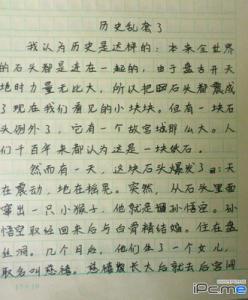 历史乱套了
我认为历史是这样的：本来全世界
的石头都是连在一起的，由于盘古开天
地时力量无比大，所以把石头都震成
了现在我们看见的小块块。但有一块石
头例外了，它有一个故宫城那么大。人
们千百年来都认为这是一块铁石。
然而有一天，这块石头爆发了：天
在震动，地在摇晃。突然，从石头里面
窜出一只小猴子，他就是孙悟空。孙
悟空取经回来后与白骨精结婚。住在盘
丝洞。几个月后，他们生了一个女儿，
取名叫慈禧。慈禧长大后就去后宫
ipcme